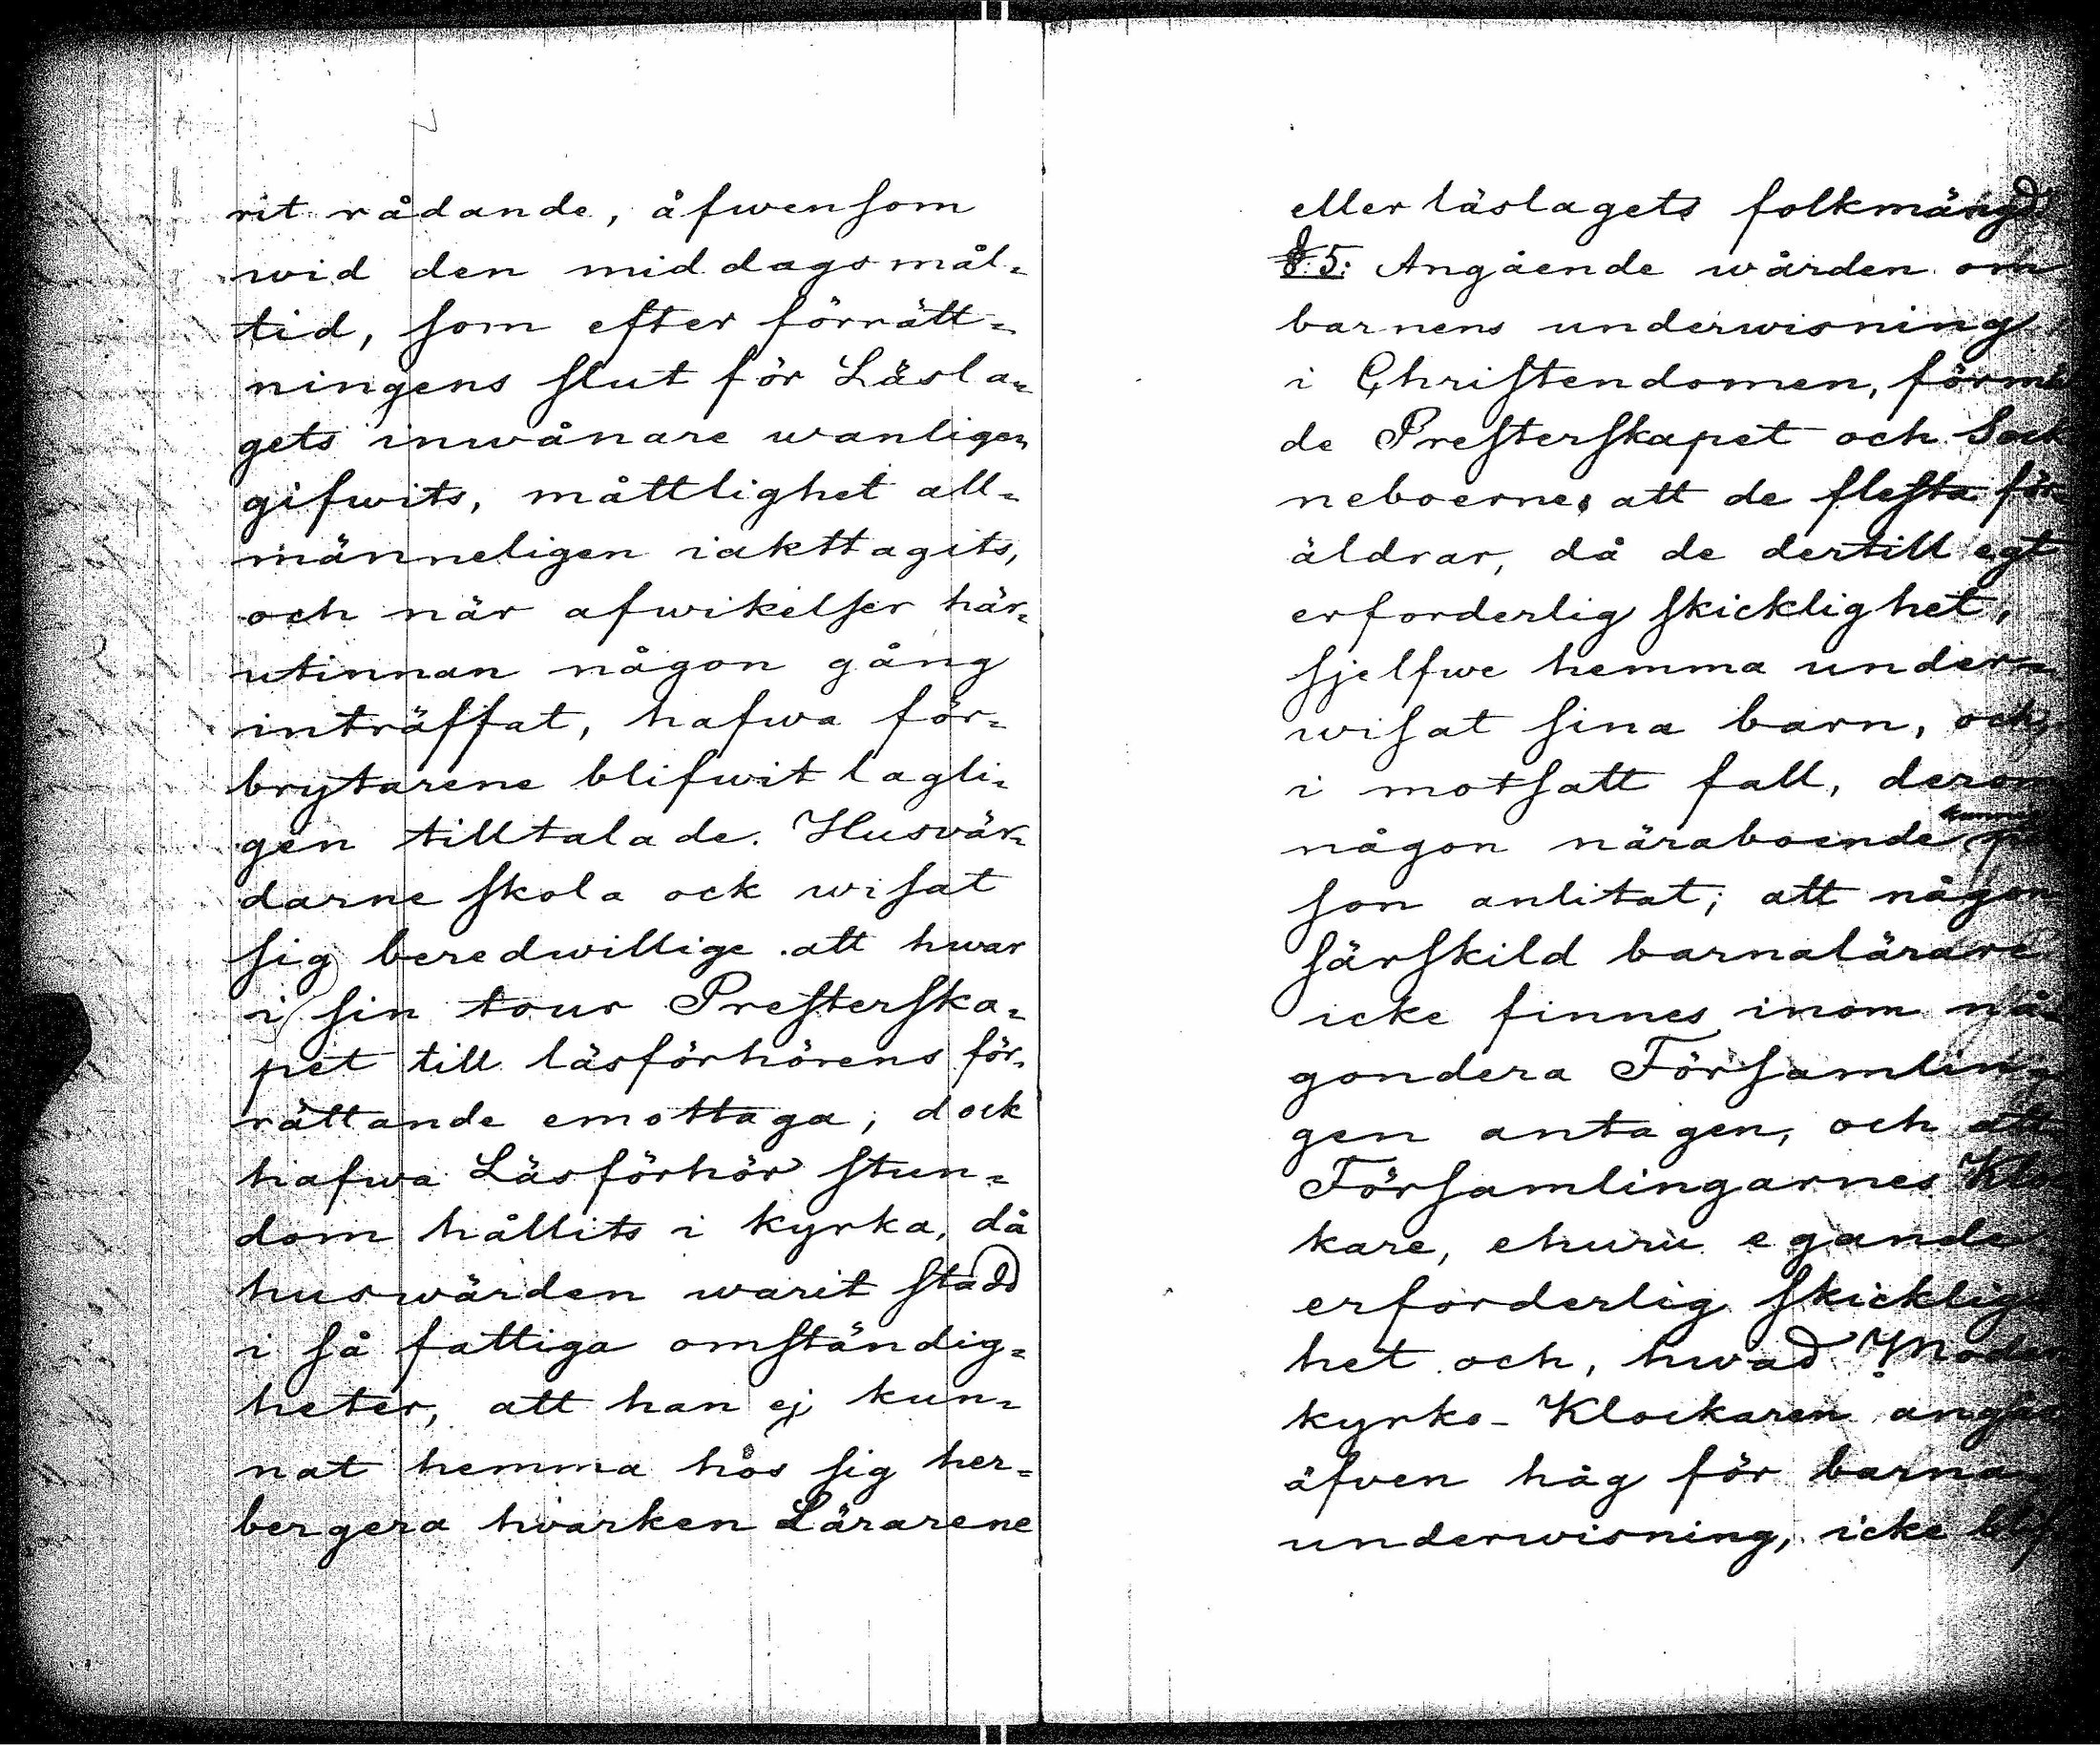 rit rådande, äfwensom
wid den middagsmål=
tid, som efter förrätt=
ningens slut för Läsla=
gets inwånare wanligen
gifwits, måttlighet all=
männeligen iakttagits,
och när afwikelser här=
utinnan någon gång
inträffat, hafwa för=
brytarene blifwit lagli=
gen tilltalade. Husvär=
darne skola ock wisat
sig beredwillige att hwar
i sin tour Presterska=
pet till läsförhörens för=
rättande emottaga; dock
hafwa Läsförhör stun=
dom hållits i kyrka, då
huswärden warit stadd
i så fattiga omständig=
heter, att han ej kun=
nat hemma hos sig her=
bergera hvarken Lärarene
eller läslagets folkmängd
§.5: Angående wården om
barnens underwisning
i Christendomen, förmä
de Presterskapet och Sock
neboerne, att de flesta för
äldrar, då de dertill egt
erforderlig skicklighet,
sjelfwe hemma under=
wisat sina barn, och,
i motsatt fall, derom
någon näraboende
son anlitat; att någon
särskild barnalärare
icke finnes inom nå=
gondera Församlin=
gen antagen, och att
Församlingarnes Klo
kare, ehuru egande
erforderlig skicklig=
het och, hwad Moder
kyrko-Klockaren angår
äfven håg för barna=
underwisning, icke blif